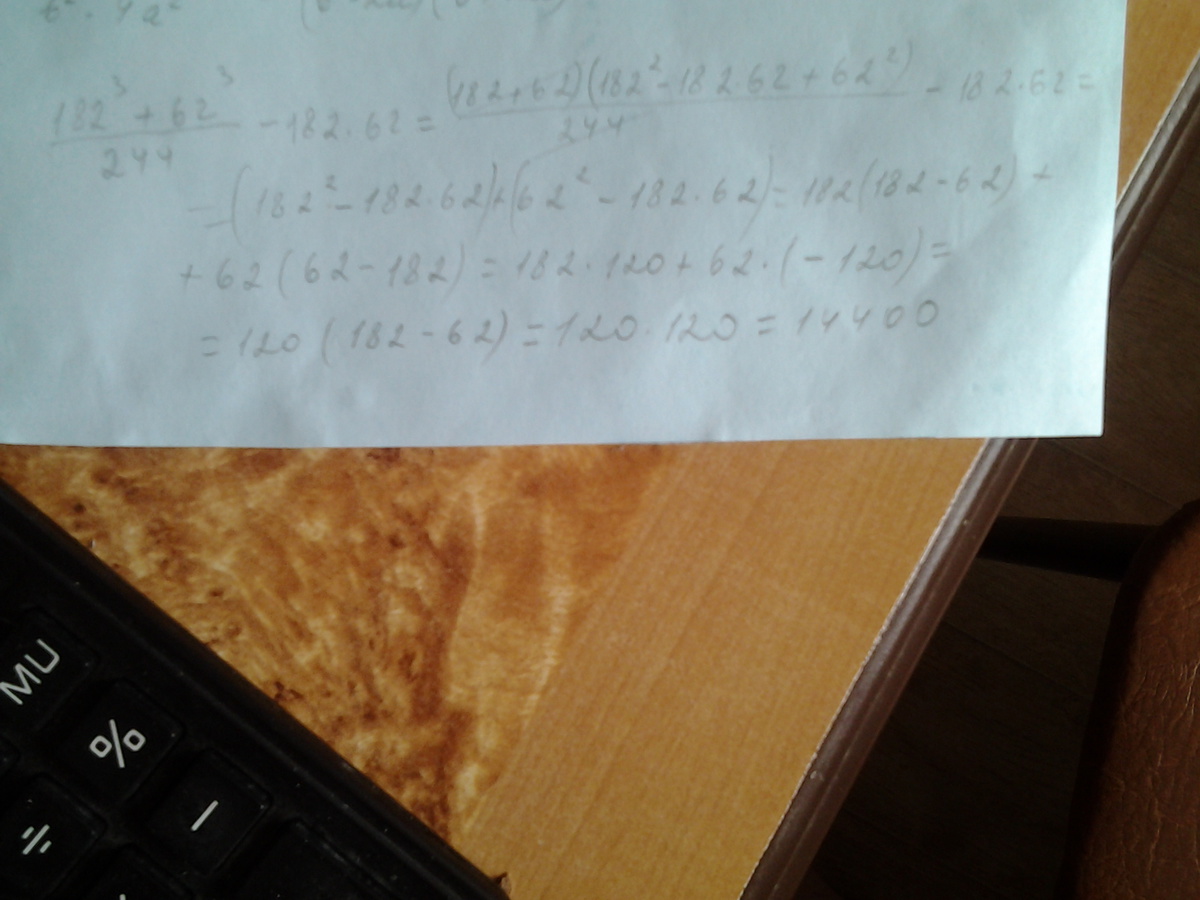 182³ + 62³ / 244 - 182·62 = (182+62)(182² - 182·62 + 62²) / 244 - 182·62 =
= (182² - 182·62) + (62² - 182·62) = 182(182 - 62) +
+ 62(62 - 182) = 182·120 + 62·(-120) =
= 120(182 - 62) = 120·120 = 14400
MU
%
-
÷